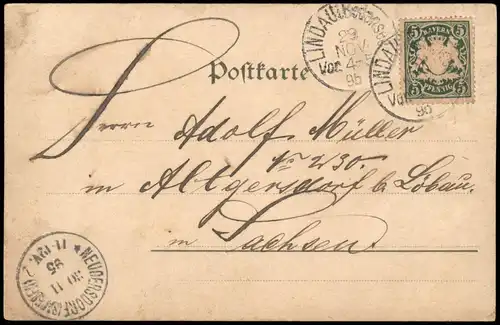 LINDAU i. Bodensee
29
NOV.
Vor. 4-5
95
LINDAU
Vor.
95
5 BAYERN 5
5 PFENNIG 5
Postkarte
Herrn Adolf Müller
No 230.
in Altgersdorf b. Löbau.
in Sachsen.
NEUGERSDORF
30 11
95